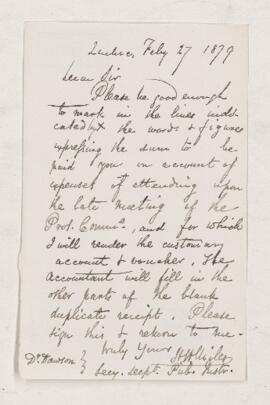 Quebec, Feby 27 1879
Dear Sir
Please be good enough
to mark in the lines indi-
cated the words & figures
expressing the sum to be
paid you on account of
expenses of attending upon
the late meeting of the
Prot. Commee, and for which
I will render the customary
account & voucher. The
accountant will fill in the
other parts of the blank
duplicate receipt. Please
sign this & return to me.
truly Yours
Dr. Dawson } Secy. Dept. Pub. Instr.